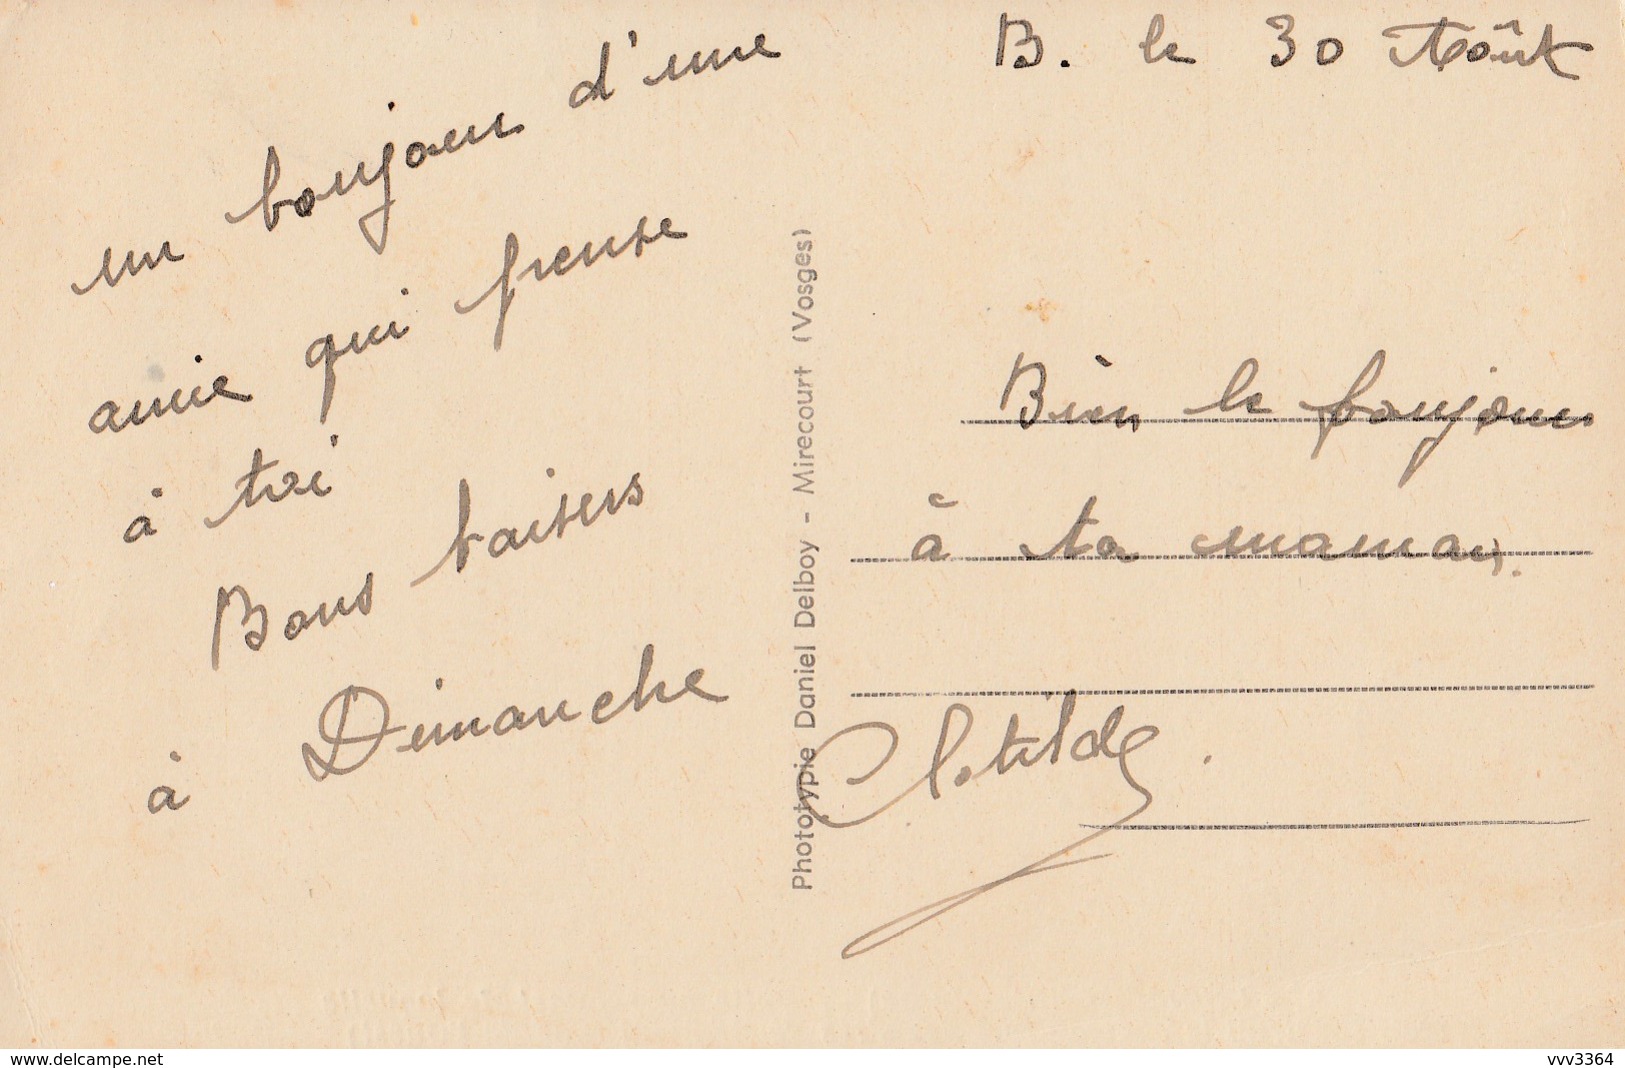 B. le 30 Août
un bonjour d'une
amie qui pense
à toi
Bons baisers
à Dimanche
Phototypie Daniel Delboy - Mirecourt (Vosges)
Bien le bonjour
à ta maman.
Clotilde.
delcampe.net
vvv3364